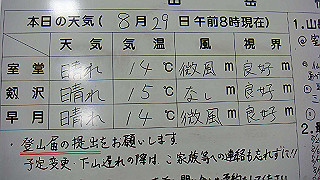 本日の天気(8月29日午前8時現在)
天気 気温 風 視界
室堂 晴れ 14℃ 微風m 良好m
剱沢 晴れ 15℃ なしm 良好m
早月 晴れ 14℃ 微風m 良好m
・登山届の提出をお願いします
予定変更・下山遅れの際はご家族等への連絡も忘れずに!!